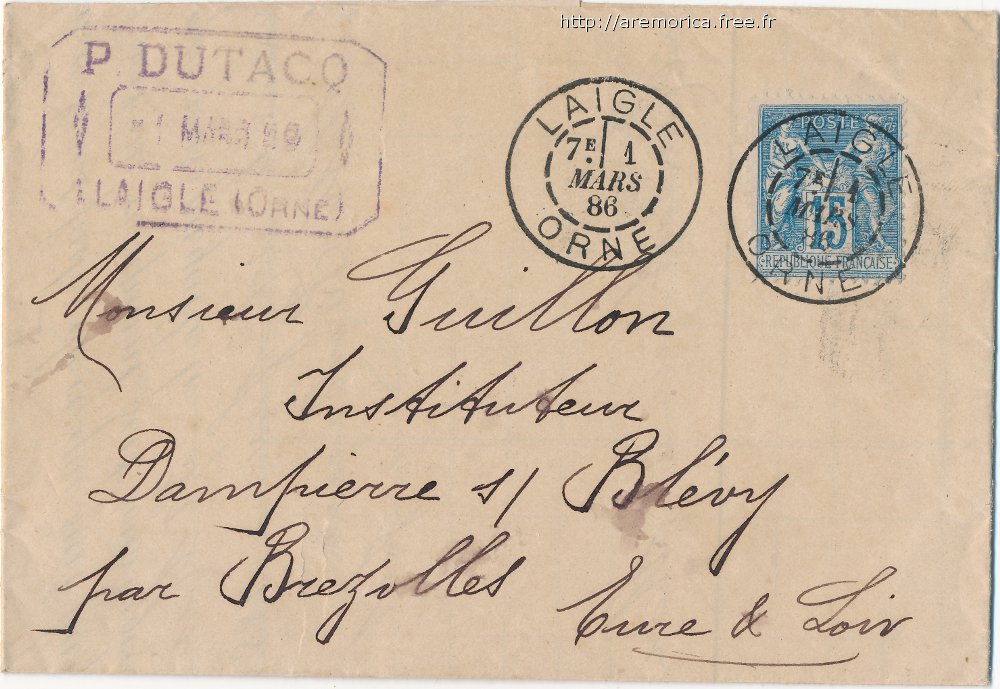 http://aremorica.free.fr
P. DUTACQ
1 MARS 86
LAIGLE (ORNE)
LAIGLE
7E 1
MARS
86
ORNE
POSTES
15
REPUBLIQUE FRANÇAISE
LAIGLE
7E 1
MARS
86
ORNE
Monsieur Guillon
Instituteur
Dampierre s/ Blévy
par Brezolles
Eure & Loir